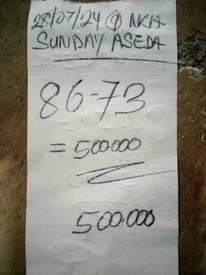 28/07/24 @ NKA
SUNDAY ASEDA
86-73
= 500.000
500.000